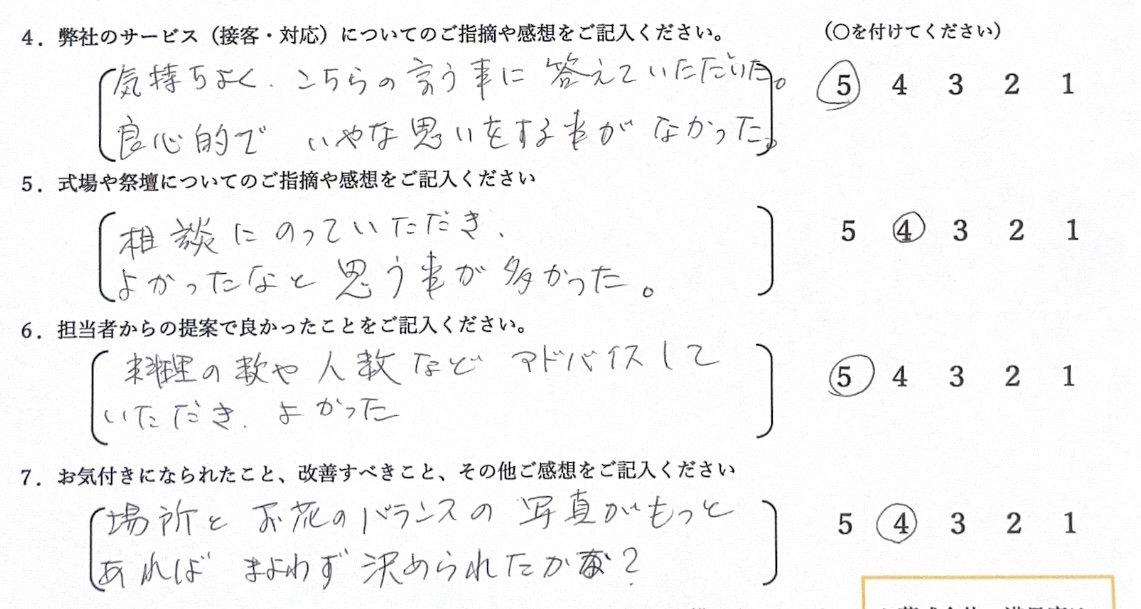 4．弊社のサービス（接客・対応）についてのご指摘や感想をご記入ください。 （○を付けてください）
気持ちよく、こちらの言う事に 答えていただいた。 5 4 3 2 1
良心的で いやな思いをする事が なかった。
5．式場や祭壇についてのご指摘や感想をご記入ください
相談にのっていただき、 5 4 3 2 1
よかったなと 思う事が 多かった。
6．担当者からの提案で良かったことをご記入ください。
料理の数や 人数など アドバイスして 5 4 3 2 1
いただき、よかった
7．お気付きになられたこと、改善すべきこと、その他ご感想をご記入ください
場所と お花のバランスの 写真がもっと 5 4 3 2 1
あれば まよわず 決められたかな？